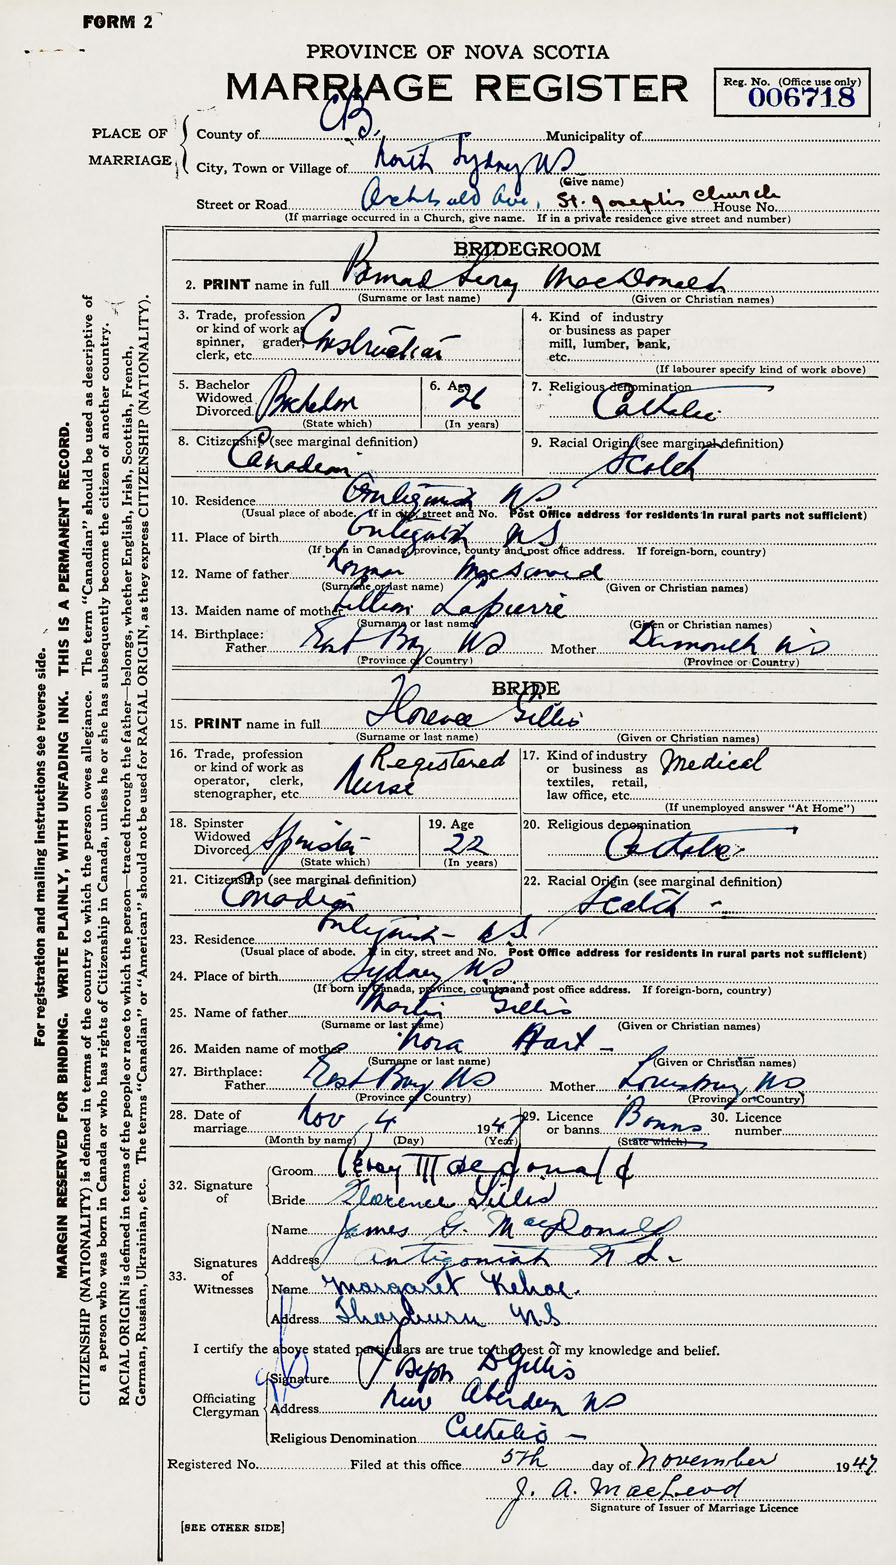 FORM 2
PROVINCE OF NOVA SCOTIA
MARRIAGE REGISTER
Reg. No. (Office use only)
006718
PLACE OF MARRIAGE
County of CB, Municipality of
City, Town or Village of North Sydney NS
(Give name)
Street or Road Archibald Ave, St. Joseph's Church House No.
(If marriage occurred in a Church, give name. If in a private residence give street and number)
BRIDEGROOM
2. PRINT name in full Bernard Leroy MacDonald
(Surname or last name) (Given or Christian names)
3. Trade, profession or kind of work as spinner, grader, clerk, etc. Construction
4. Kind of industry or business as paper mill, lumber, bank, etc.
(If labourer specify kind of work above)
5. Bachelor Widowed Divorced Bachelor
(State which)
6. Age 26
(In years)
7. Religious denomination Catholic
8. Citizenship (see marginal definition) Canadian
9. Racial Origin (see marginal definition) Scotch
10. Residence Antigonish NS
(Usual place of abode. If in city, street and No. Post Office address for residents in rural parts not sufficient)
11. Place of birth Antigonish NS
(If born in Canada, province, county and post office address. If foreign-born, country)
12. Name of father Norman MacDonald
(Surname or last name) (Given or Christian names)
13. Maiden name of mother Lillian Lapierre
(Surname or last name) (Given or Christian names)
14. Birthplace: Father East Bay NS Mother NS
(Province or Country) (Province or Country)
BRIDE
15. PRINT name in full Florence Gillis
(Surname or last name) (Given or Christian names)
16. Trade, profession or kind of work as operator, clerk, stenographer, etc. Registered Nurse
17. Kind of industry or business as textiles, retail, law office, etc. Medical
(If unemployed answer "At Home")
18. Spinster Widowed Divorced Spinster
(State which)
19. Age 22
(In years)
20. Religious denomination Catholic
21. Citizenship (see marginal definition) Canadian
22. Racial Origin (see marginal definition) Scotch -
23. Residence Antigonish - N.S.
(Usual place of abode. If in city, street and No. Post Office address for residents in rural parts not sufficient)
24. Place of birth Sydney NS
(If born in Canada, province, county and post office address. If foreign-born, country)
25. Name of father Martin Gillis
(Surname or last name) (Given or Christian names)
26. Maiden name of mother Nora Hart -
(Surname or last name) (Given or Christian names)
27. Birthplace: Father East Bay NS Mother Louisburg NS
(Province or Country) (Province or Country)
28. Date of marriage Nov 4 1947
(Month by name) (Day) (Year)
29. Licence or banns Banns
(State which)
30. Licence number
32. Signature of
Groom Leroy MacDonald
Bride Florence Gillis
33. Signatures of Witnesses
Name James G. MacDonald
Address Antigonish N.S.
Name Margaret Kehoe.
Address Thorburn N.S.
I certify the above stated particulars are true to the best of my knowledge and belief.
Officiating Clergyman
Signature Joseph D Gillis
Address New Aberdeen NS
Religious Denomination Catholic -
Registered No. Filed at this office 5th day of November 1947
J. A. MacLeod
Signature of Issuer of Marriage Licence
[SEE OTHER SIDE]
For registration and mailing instructions see reverse side.
MARGIN RESERVED FOR BINDING. WRITE PLAINLY, WITH UNFADING INK. THIS IS A PERMANENT RECORD.
CITIZENSHIP (NATIONALITY) is defined in terms of the country to which the person owes allegiance. The term "Canadian" should be used as descriptive of
a person who was born in Canada or who has rights of Citizenship in Canada, unless he or she has subsequently become the citizen of another country.
RACIAL ORIGIN is defined in terms of the people or race to which the person—traced through the father—belongs, whether English, Irish, Scottish, French,
German, Russian, Ukrainian, etc. The terms "Canadian" or "American" should not be used for RACIAL ORIGIN, as they express CITIZENSHIP (NATIONALITY).